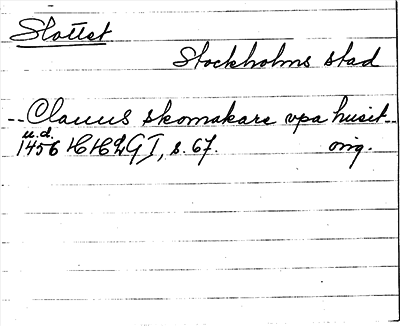 Slottet
Stockholms stad
-- Clauus skomakare vpa husit --
u.d.
1456 HHLG I, s. 67. orig.